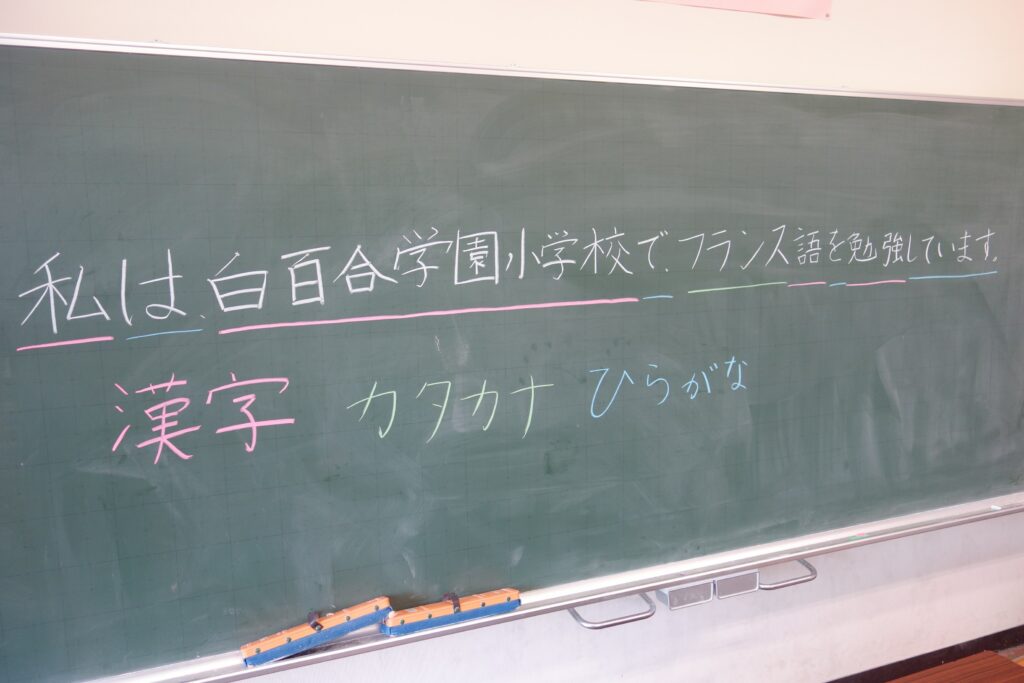 私は、白百合学園小学校で、フランス語を勉強しています。
漢字 カタカナ ひらがな